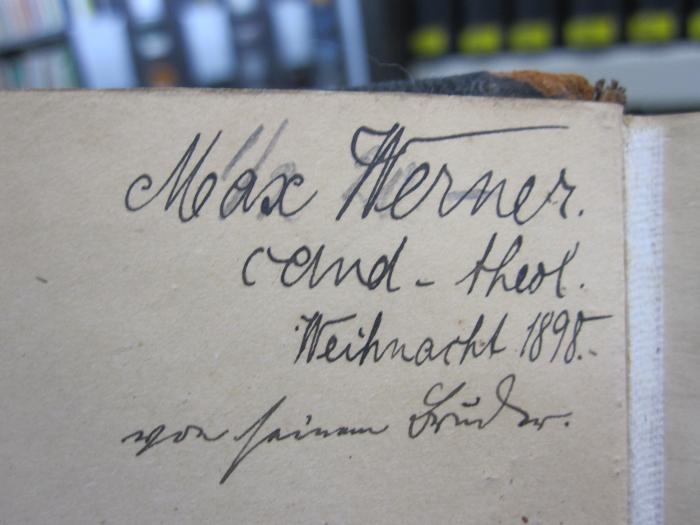 Max Werner.
cand - theol.
Weihnacht 1898.
von seinem Bruder.